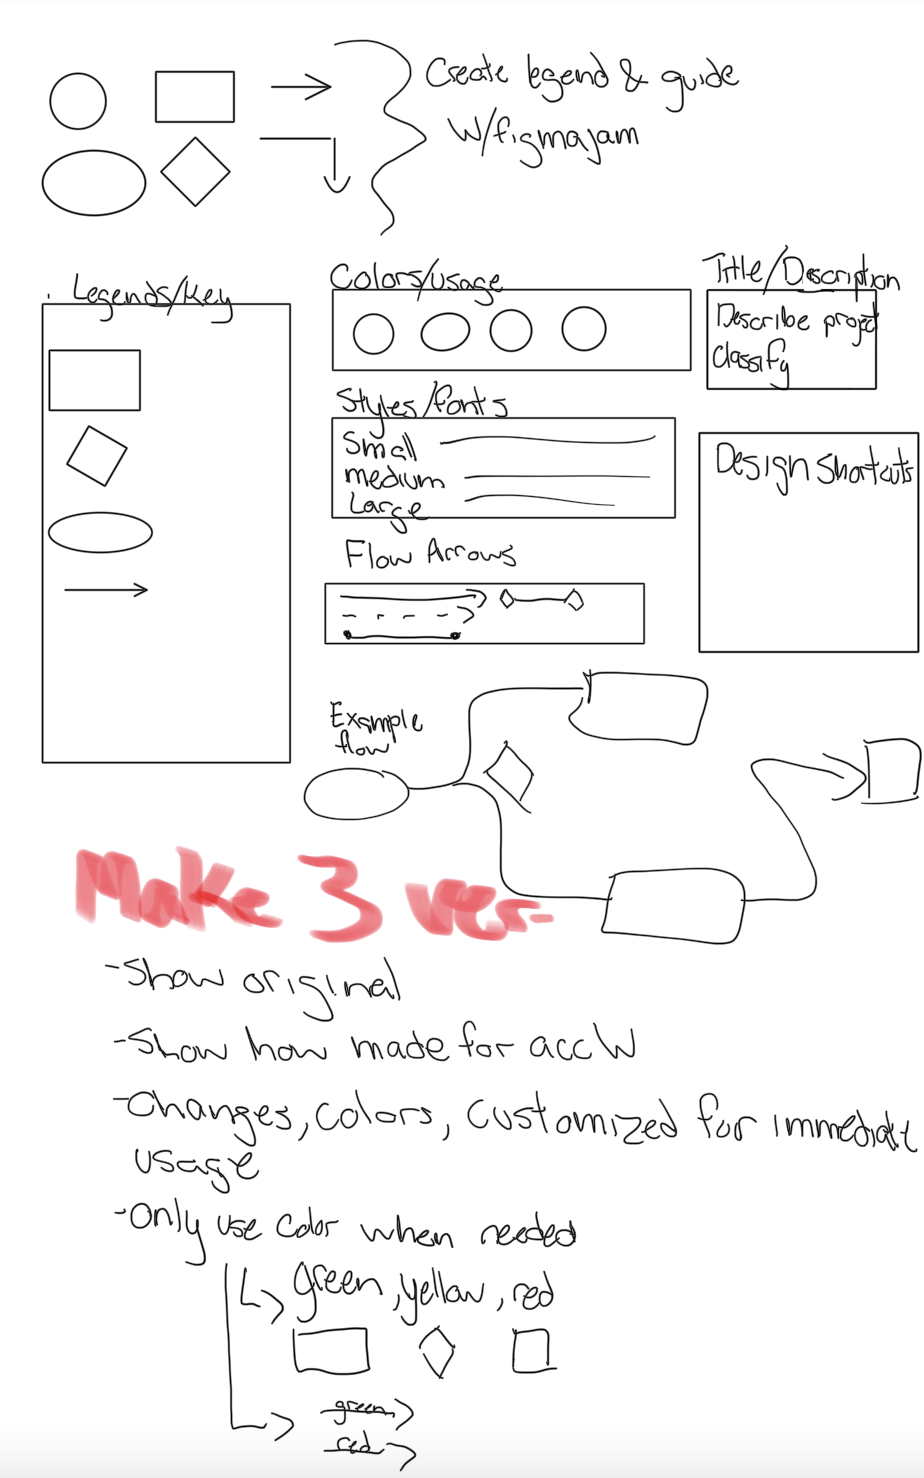 Create legend & guide
w/figmajam
Legends/Key
Colors/usage
Title/Description
Describe project
Classify
Styles/fonts
Small
medium
Large
Design shortcuts
Flow Arrows
Example
flow
Make 3 ves-
-Show original
-Show how made for accw
-Changes, colors, customized for immediate
usage
-Only use color when needed
green, yellow, red
green
red